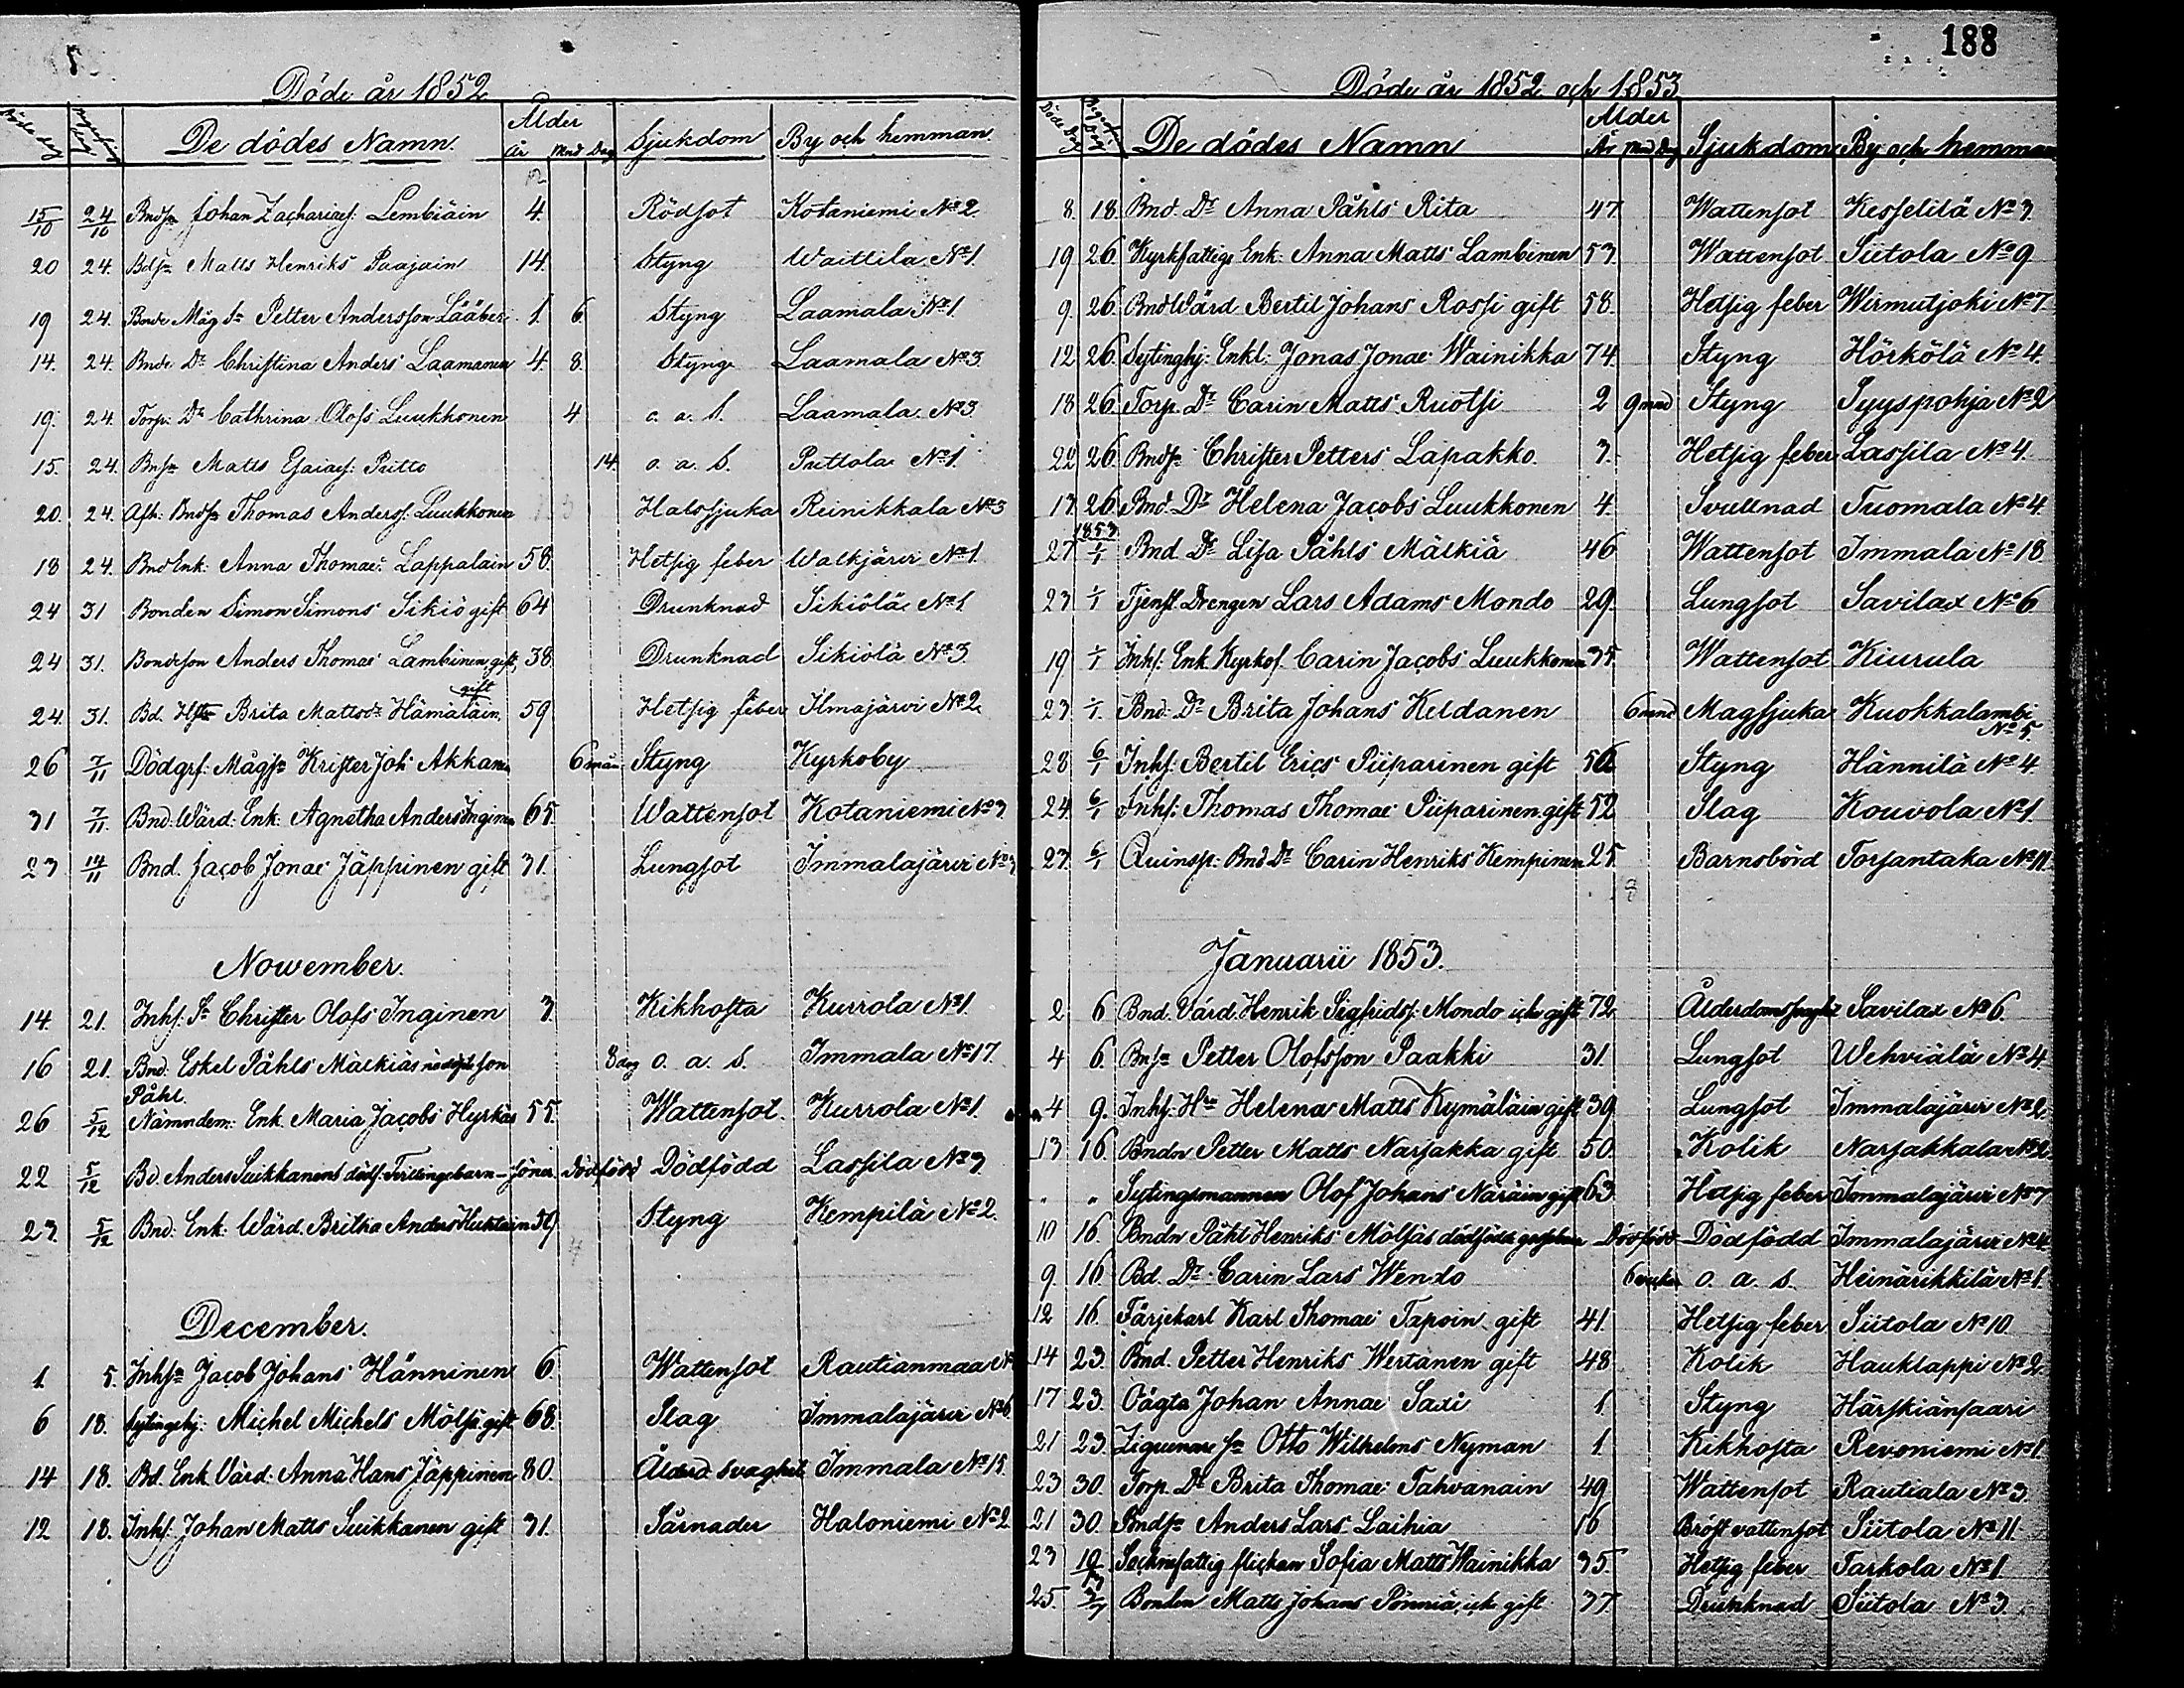 Döde år 1852
Döde dag Begrafn. dag De dödes Namn. Ålder År Mnd Dag Sjukdom By och hemman.
15/10 24/10 Bndsn Johan Zachariaes: Lembiäin 4. Rödsot Kotaniemi No 2.
20 24. Bdsn Matts Henriks Paajain 14. Styng Waittila No 1.
19 24. Bonde Måg Sn Petter Andersson Lääber 1. 6. Styng Laamala No 1.
14. 24. Bnde Dr Christina Anders Laamanen 4. 8. Styng Laamala No 3.
19. 24. Torp. Dr Cathrina Olofs Luukkonen 4 o. a. s. Laamala No 3.
15. 24. Bnsn Matts Esaiaes: Putto 14. o. a. s. Puttola No 1.
20. 24. Afk: Bndsn Thomas Anderss: Luukkonen Halssjuka Reinikkala No 3
18 24. Bnd Enk: Anna Thomae: Lappalain 58. Hetsig feber Walkjärvi No 1.
24 31 Bonden Simon Simons Sikiö gift 64 Drunknad Sikiölä No 1.
24 31. Bondeson Anders Thomae Lambinen gift, 38. Drunknad Sikiölä No 3.
24. 31. Bd. Hstr Brita Mattsdr Hämäläin. gift 59 Hetsig feber Ilmajärvi No 2.
26 7/11 Dödgrf: Mågsn Krister Joh: Akkanen 6 mån Styng Kyrkoby
31 7/11. Bnd. Wärd. Enk. Agnetha Anders Inginen 65. Wattensot Kotaniemi No 3.
23 14/11 Bnd. Jacob Jonae Jäppinen gift 31. Lungsot Immalajärvi No 3
Nowember.
14. 21. Inhs: Sn Christer Olofs Inginen 3. Kikhosta Kurrola No 1.
16 21. Bnd. Eskel Påhls Mälkiäs nödöpt son Påhl. 8 dag o. a. s. Immala No 17.
26 5/12 Nämndem: Enk. Maria Jacobs Hyrkäs 55. Wattensot. Kurrola No 1.
22 5/12 Bd. Anders Suikkanens dödf: Tvillingebarn - söner. Dödfödd Dödfödd Lassila No 3
23. 5/12 Bnd: Enk: Wärd. Britha Anders Kuklain 59 Styng Kempilä No 2.
December.
1. 5. Inhsn Jacob Johans Hänninen 6. Wattensot Rautianmaa No
6 18. Sytingshj: Michel Michels Mölsä gift 68. Slag Immalajärvi No 6.
14 18. Bd. Enk Värd. Anna Hans Jäppinen 80. Ålderd. svaghet Immala No 15.
12 18. Inhs. Johan Matts Suikkanen gift 31. Sårnader Haloniemi No 2
188
Döde år 1852 och 1853
Döde Dag Begrafn. Dag De dödes Namn Ålder År Mnd Dag Sjukdom By och hemman
8. 18. Bnd. Dr Anna Påhls Rita 47 Wattensot Kesselilä No 3.
19 26. Kyrkfattige Enk: Anna Matts Lambinen 53. Wattensot Siitola No 9
9. 26. Bnd Wärd Bertil Johans Rossi gift 58. Hetsig feber Wirmutjoki No 7.
12 26. Sytinghj: Enkl: Jonas Jonae Wainikka 74. Styng Hörkölä No 4.
18 26. Torp. Dr Carin Matts Ruotsi 2 9 mnd Styng Pyyspohja No 2
22 26. Bndsn Christer Petters Lapakko. 3. Hetsig feber Lassila No 4.
17 26. Bnd. Dr Helena Jacobs Luukkonen 4. Svullnad Tuomala No 4.
1853
27 1/1 Bnd. Dr Lisa Påhls Mälkiä 46 Wattensot Immala No 18
23 1/1 Tjenst. Drengen Lars Adams Mondo 29. Lungsot Savilax No 6
19. 1/1 Inhs. Enk. Kyrkof. Carin Jacobs Luukkonen 35. Wattensot Kiurula
23 1/1. Bnd: Dr Brita Johans Keldanen 6 mnd Magsjuka Kuokkalambi No 5.
28 6/1 Inhs: Bertil Erics Piiparinen gift 56 Styng Hännilä No 4.
24. 6/1 Inhs: Thomas Thomae Piiparinen gift 52 Slag Kouvola No 1.
27. 6/1 Quinsp: Bnd Dr Carin Henriks Kempinen 25. Barnsbörd Torsantaka No 11.
Januarii 1853.
2 6 Bnd. Värd. Henrik Sigfridss: Mondo icke gift 72 Ålderdomssvaghet Savilax No 6.
4 6. Bnsn Petter Olofsson Paakki 31. Lungsot Wehviälä No 4
4 9. Inhs: Hru Helena Matts Kymäläin gift 39 Lungsot Immalajärvi No 2.
13 16. Bndn Petter Matts Narsakka gift 50. Kolik Narsakkala No 2.
" " Sytingsmannen Olof Johans Näräin gift 63. Hetsig feber Immalajärvi No 7
10 16. Bndn Påhl Henriks Mölsäs dödfödde gossebarn Dödfödd Dödfödd Immalajärvi No 4
9. 16 Bd. Dr Carin Lars Wendo 6 veckor o. a. s. Heinärikkilä No 1.
12 16. Färjekarl Karl Thomae Tapoin gift 41. Hetsig feber Siitola No 10.
14 23. Bnd. Petter Henriks Wertanen gift 48 Kolik Hauklappi No 2.
17 23. Oägta Johan Annae Saxi 1. Styng Härskiänsaari
21 23. Ziguenare sn Otto Wilhelms Nyman 1. Kikhosta Revoniemi No 1.
23 30. Torp. Dr Brita Thomae Tahvanain 49 Wattensot Rautiala No 3
21 30. Bndsn Anders Lars Laihia 16 Bröst vattensot Siitola No 11.
23 Socknefattig flickan Sofia Matts Wainikka 35. Hetsig feber Tarkola No 1
25. Bonden Matts Johans Pönniä, icke gift 37 Drunknad Siitola No 3.